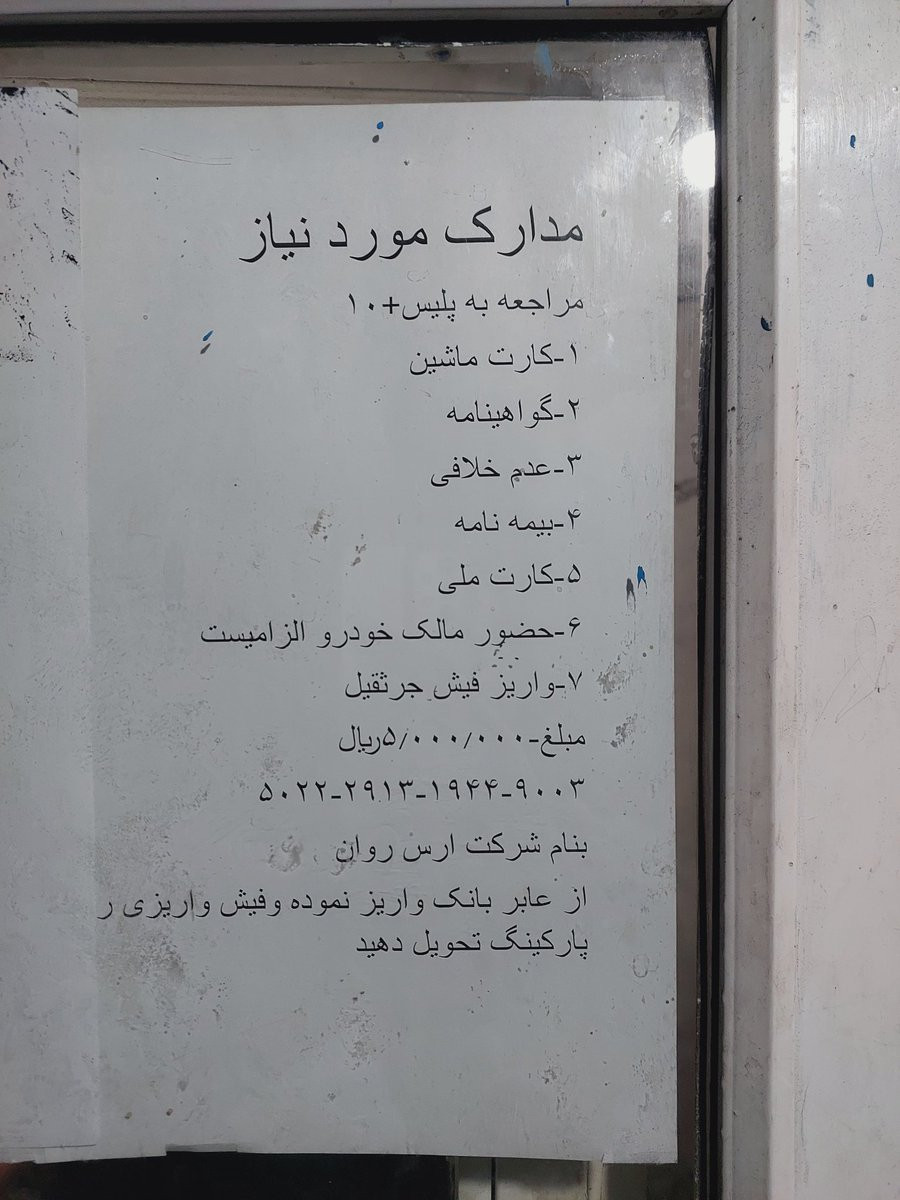 مدارک مورد نیاز
مراجعه به پلیس+۱۰
۱-کارت ماشین
۲-گواهینامه
۳-عدم خلافی
۴-بیمه نامه
۵-کارت ملی
۶-حضور مالک خودرو الزامیست
۷-واریز فیش جرثقیل
مبلغ-۵/۰۰۰/۰۰۰ریال
۵۰۲۲-۲۹۱۳-۱۹۴۴-۹۰۰۳
بنام شرکت ارس روان
از عابر بانک واریز نموده وفیش واریزی ر
پارکینگ تحویل دهید